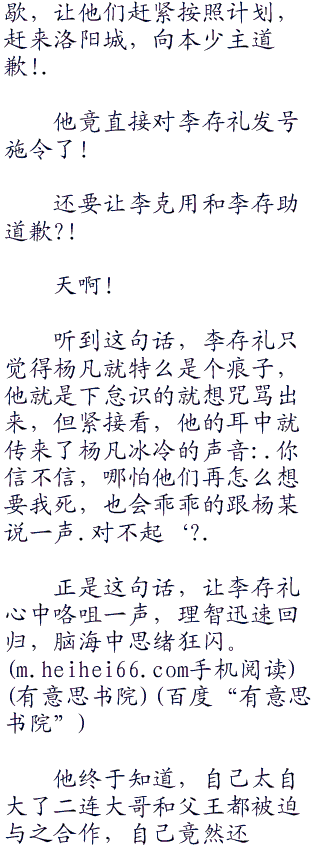 歇，让他们赶紧按照计划，
赶来洛阳城，向本少主道
歉!.
他竟直接对李存礼发号
施令了!
还要让李克用和李存助
道歉?!
天啊!
听到这句话，李存礼只
觉得杨凡就特么是个痕子，
他就是下怠识的就想咒骂出
来，但紧接看，他的耳中就
传来了杨凡冰冷的声音:.你
信不信，哪怕他们再怎么想
要我死，也会乖乖的跟杨某
说一声.对不起‘?.
正是这句话，让李存礼
心中咯咀一声，理智迅速回
归，脑海中思绪狂闪。
(m.heihei66.com手机阅读)
(有意思书院)(百度“有意思
书院”)
他终于知道，自己太自
大了二连大哥和父王都被迫
与之合作，自己竟然还